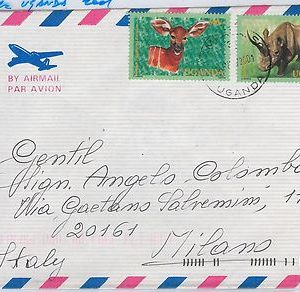 UGANDA 2001
BY AIRMAIL
PAR AVION
UGANDA
UGANDA
2001
Gentil
Sign. Angelo Colombo
Via Gaetano Salvemini, 1
20161
Milano
Italy